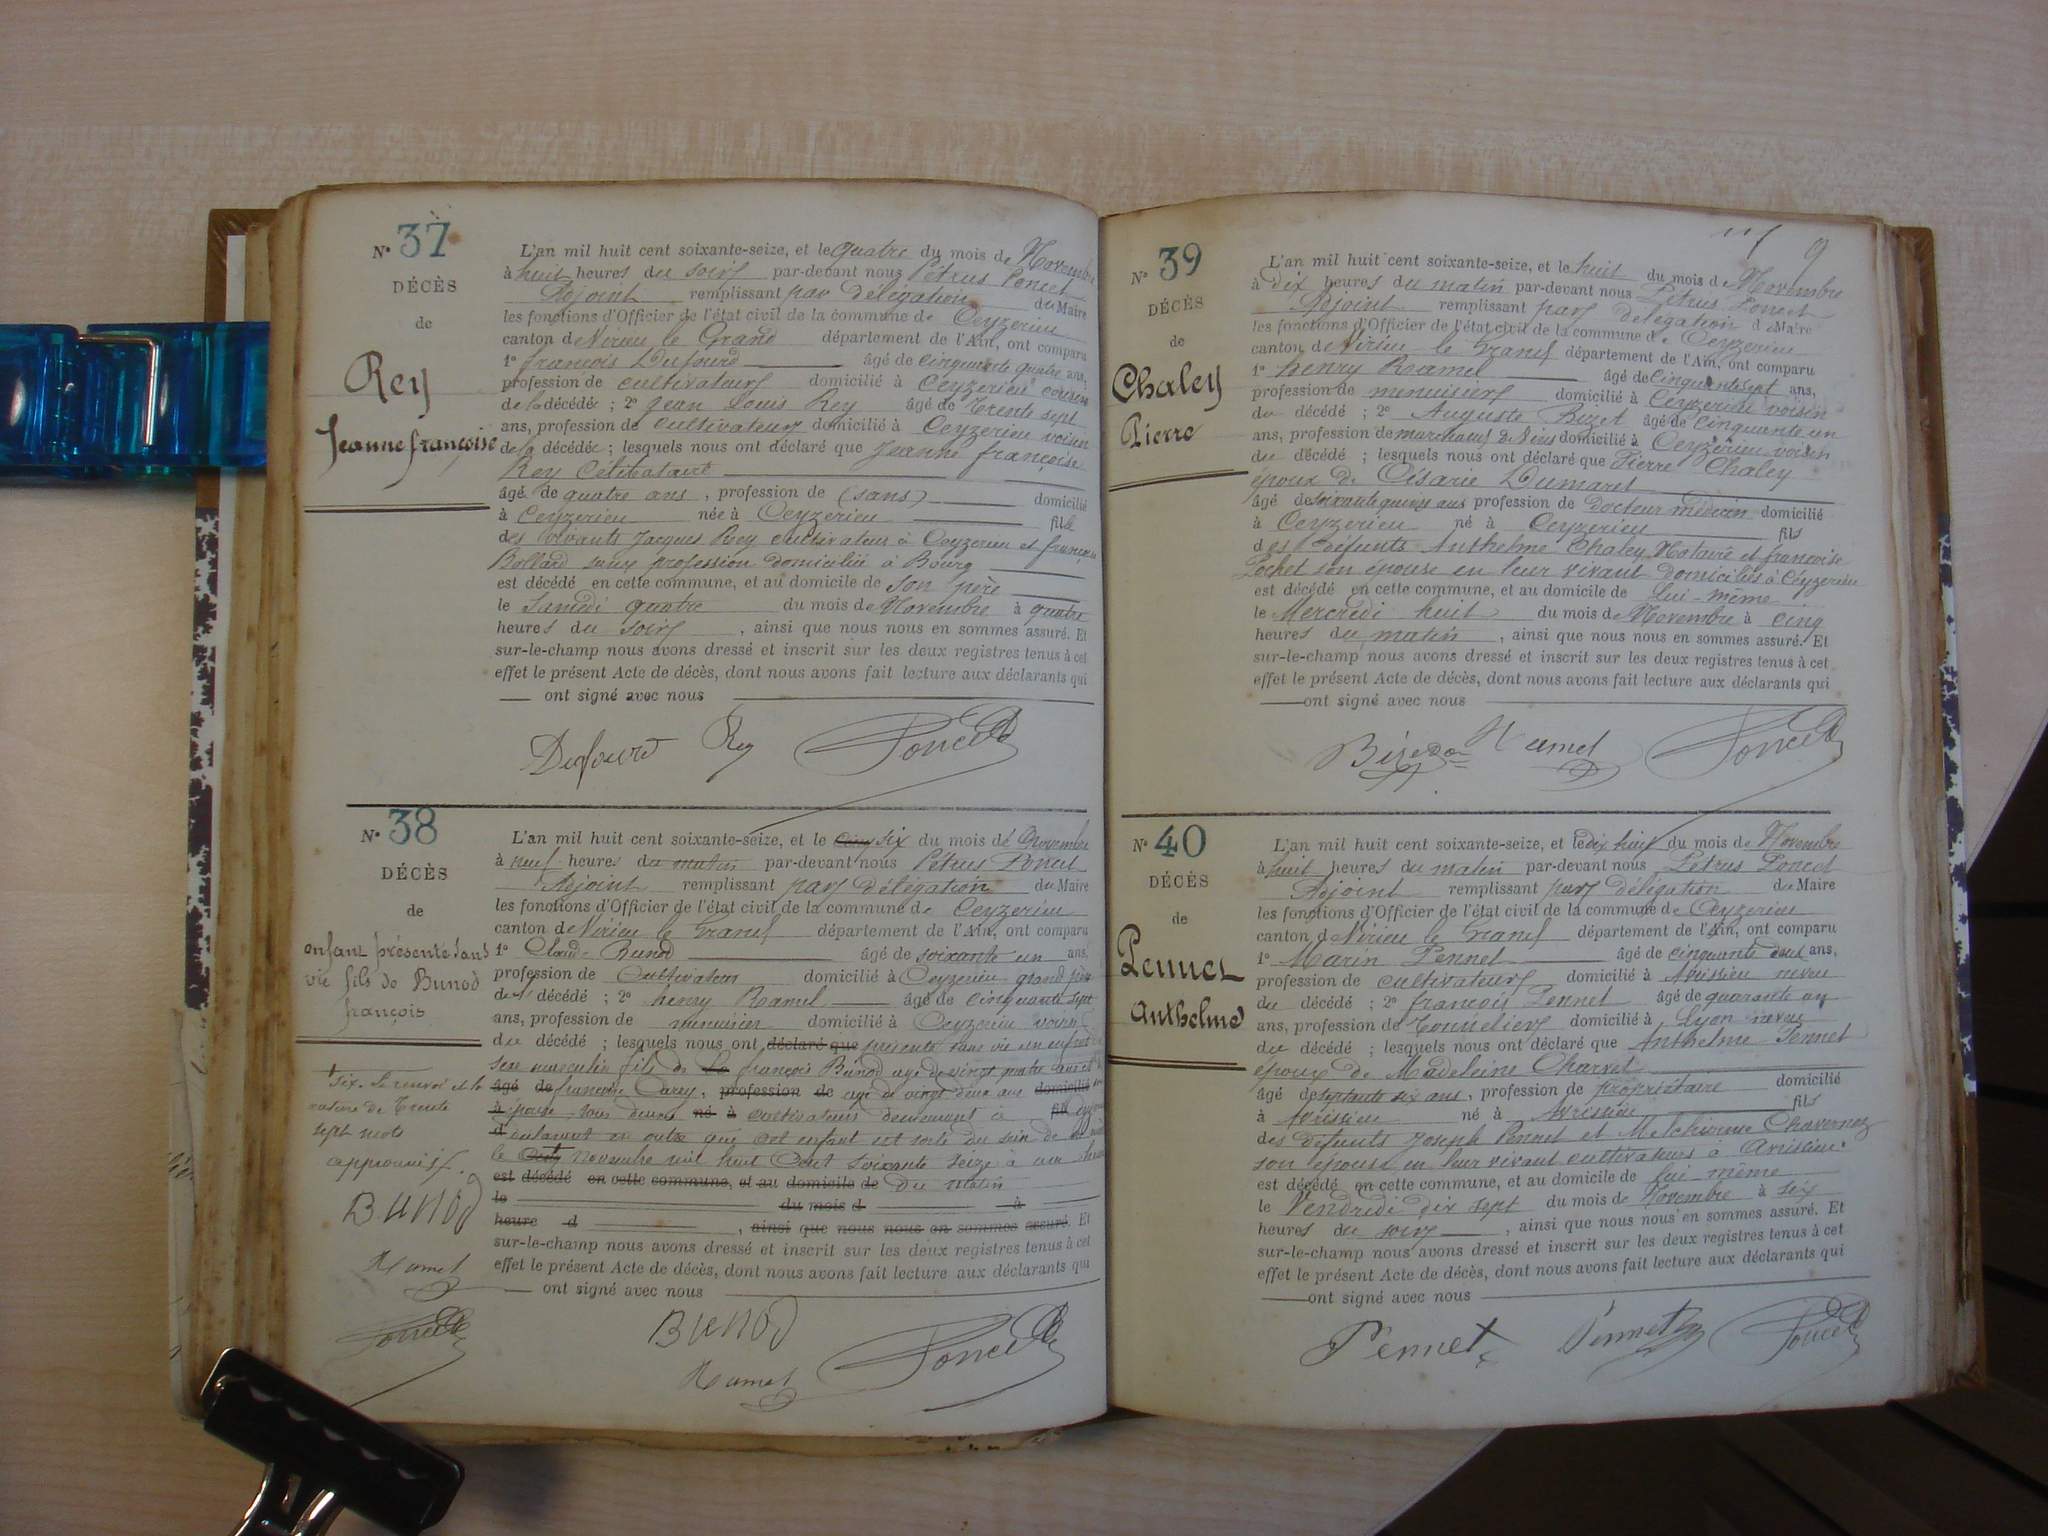 N° 37
DÉCÈS
de
Rey
Jeanne françoise
L'an mil huit cent soixante-seize, et le quatre du mois de Novembre
à huit heures du soir par-devant nous Pétrus Poncet
Adjoint remplissant par délégation du Maire
les fonctions d'Officier de l'état civil de la commune de Ceyzerieu
canton de Virieu le Grand département de l'Ain, ont comparu
1° françois Dufourd âgé de cinquante quatre ans,
profession de cultivateur domicilié à Ceyzerieu cousin
de la décédée ; 2° Jean Louis Rey âgé de Trente sept
ans, profession de cultivateur domicilié à Ceyzerieu voisin
de la décédée ; lesquels nous ont déclaré que Jeanne françoise
Rey Célibataire
âgé de quatre ans, profession de (sans) domicilié
à Ceyzerieu née à Ceyzerieu fille
des vivants Jacques Rey cultivateur à Ceyzerieu et françoise
Bollard sans profession domiciliée à Bourg
est décédé en cette commune, et au domicile de son père
le Samedi quatre du mois de Novembre à quatre
heures du soir, ainsi que nous nous en sommes assuré. Et
sur-le-champ nous avons dressé et inscrit sur les deux registres tenus à cet
effet le présent Acte de décès, dont nous avons fait lecture aux déclarants qui
ont signé avec nous
Dufourd Rey Poncet
N° 38
DÉCÈS
de
enfant présenté sans
vie fils de Bunod
françois
L'an mil huit cent soixante-seize, et le cinq six du mois de Novembre
à neuf heures du matin par-devant nous Pétrus Poncet
Adjoint remplissant par délégation du Maire
les fonctions d'Officier de l'état civil de la commune de Ceyzerieu
canton de Virieu le Grand département de l'Ain, ont comparu
1° Claude Bunod âgé de soixante un ans,
profession de Cultivateur domicilié à Ceyzerieu grand père
du décédé ; 2° henry Ramel âgé de cinquante sept
ans, profession de menuisier domicilié à Ceyzerieu voisin
du décédé ; lesquels nous ont déclaré que présenté sans vie un enfant
sexe masculin fils de françois Bunod agé de vingt quatre ans et
âgé de françoise Carry, profession de agé de vingt deux ans domicilié
à épouse tous deux né à cultivateurs demeurant à fil
d déclarant en outre que cet enfant est sorti du sein de
le Novembre mil huit Cent soixante seize à une
est décédé en cette commune, et au domicile de du matin
le du mois d à
heure d , ainsi que nous nous en sommes assuré. Et
sur-le-champ nous avons dressé et inscrit sur les deux registres tenus à cet
effet le présent Acte de décès, dont nous avons fait lecture aux déclarants qui
ont signé avec nous
six. Le renvoi et la
rature de Trente
sept mots
approuvés.
Bunod
Ramel
Poncet
Bunod
Ramel Poncet
9
N° 39
DÉCÈS
de
Chaley
Pierre
L'an mil huit cent soixante-seize, et le huit du mois de Novembre
à dix heures du matin par-devant nous Pétrus Poncet
Adjoint remplissant par délégation du Maire
les fonctions d'Officier de l'état civil de la commune de Ceyzerieu
canton de Virieu le Grand département de l'Ain, ont comparu
1° henry Ramel âgé de cinquante sept ans,
profession de menuisier domicilié à Ceyzerieu voisin
du décédé ; 2° Auguste Bizet âgé de cinquante un
ans, profession de marchand de vins domicilié à Ceyzerieu voisin
du décédé ; lesquels nous ont déclaré que Pierre Chaley
époux de Césarie Dumaret
âgé de soixante quinze ans profession de Docteur médecin domicilié
à Ceyzerieu né à Ceyzerieu fils
des défunts Anthelme Chaley, Notaire et françoise
Lochet son épouse en leur vivant domiciliés à Ceyzerieu
est décédé en cette commune, et au domicile de Lui-même
le Mercredi huit du mois de Novembre à cinq
heures du matin, ainsi que nous nous en sommes assuré. Et
sur-le-champ nous avons dressé et inscrit sur les deux registres tenus à cet
effet le présent Acte de décès, dont nous avons fait lecture aux déclarants qui
ont signé avec nous
Ramel Poncet
N° 40
DÉCÈS
de
Pennet
Anthelme
L'an mil huit cent soixante-seize, et le dix huit du mois de Novembre
à huit heures du matin par-devant nous Pétrus Poncet
Adjoint remplissant par délégation du Maire
les fonctions d'Officier de l'état civil de la commune de Ceyzerieu
canton de Virieu le Grand département de l'Ain, ont comparu
1° Marin Pennet âgé de cinquante deux ans,
profession de cultivateur domicilié à Avrissieu neveu
du décédé ; 2° françois Pennet âgé de quarante un
ans, profession de Tonnelier domicilié à Lyon neveu
du décédé ; lesquels nous ont déclaré que Anthelme Pennet
époux de Madeleine Charvet
âgé de septante six ans, profession de propriétaire domicilié
à Avrissieu né à Avrissieu fils
des défunts Joseph Pennet et Melchionne Chavernoz
son épouse en leur vivant cultivateurs à Avrissieu
est décédé en cette commune, et au domicile de lui même
le Vendredi dix sept du mois de Novembre à six
heures du soir, ainsi que nous nous en sommes assuré. Et
sur-le-champ nous avons dressé et inscrit sur les deux registres tenus à cet
effet le présent Acte de décès, dont nous avons fait lecture aux déclarants qui
ont signé avec nous
Pennet Pennet Poncet